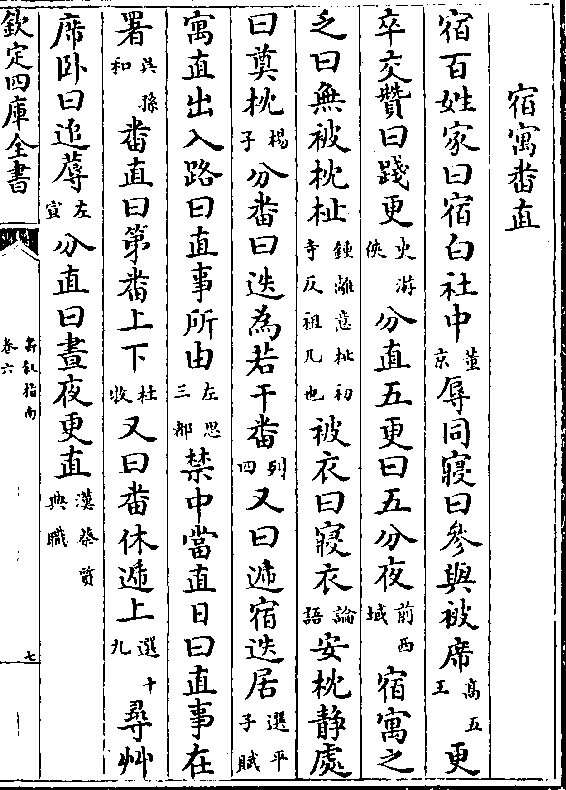 宿寓畨直
宿百姓家曰宿白社中董京辱同寝曰參與被席高五王更
卒交賛曰踐更史游俠分直五更曰五分夜前西域宿寓之
乏曰無被枕杫鍾離意杫初寺反祖几也被衣曰寢衣論語安枕静處
曰奠枕楊子分畨曰迭為若干畨列四又曰遞宿迭居選平子賦
寓直出入路曰直事所由左思三都禁中當直日曰直事在
署呉孫和畨直曰第畨上下杜牧又曰畨休遞上選十九尋艸
席卧曰追蓐左宣分直曰晝夜更直漢蔡質典職
欽定四庫全書
卷六
七